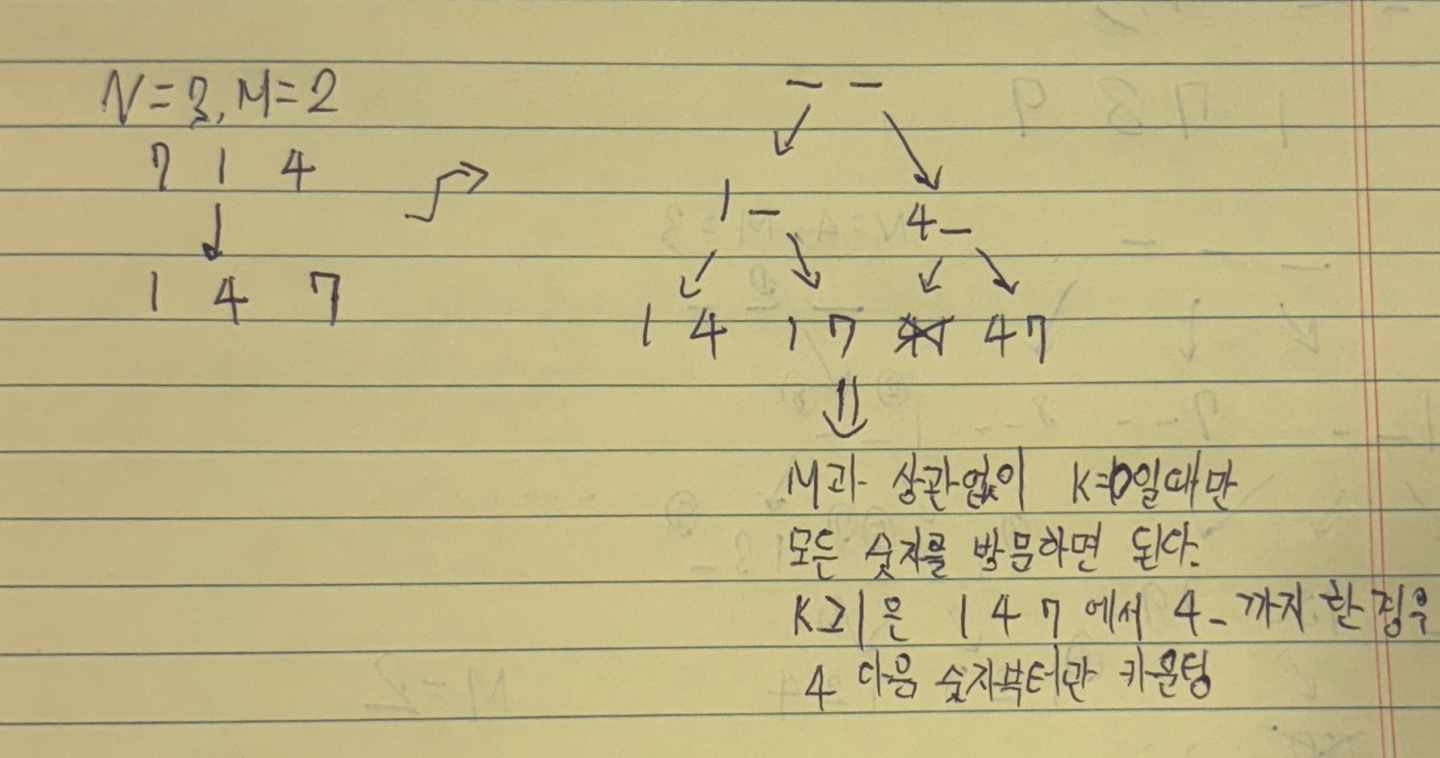 N=3, M=2
7 1 4
1 4 7
_ _
1 _ 4 _
1 4 1 7 41 4 7
M과 상관없이 K=0일때만
모든 숫자를 방문하면 된다.
K≥1은 1 4 7에서 4_ 까지 한 경우
4 다음 숫자부터만 카운팅